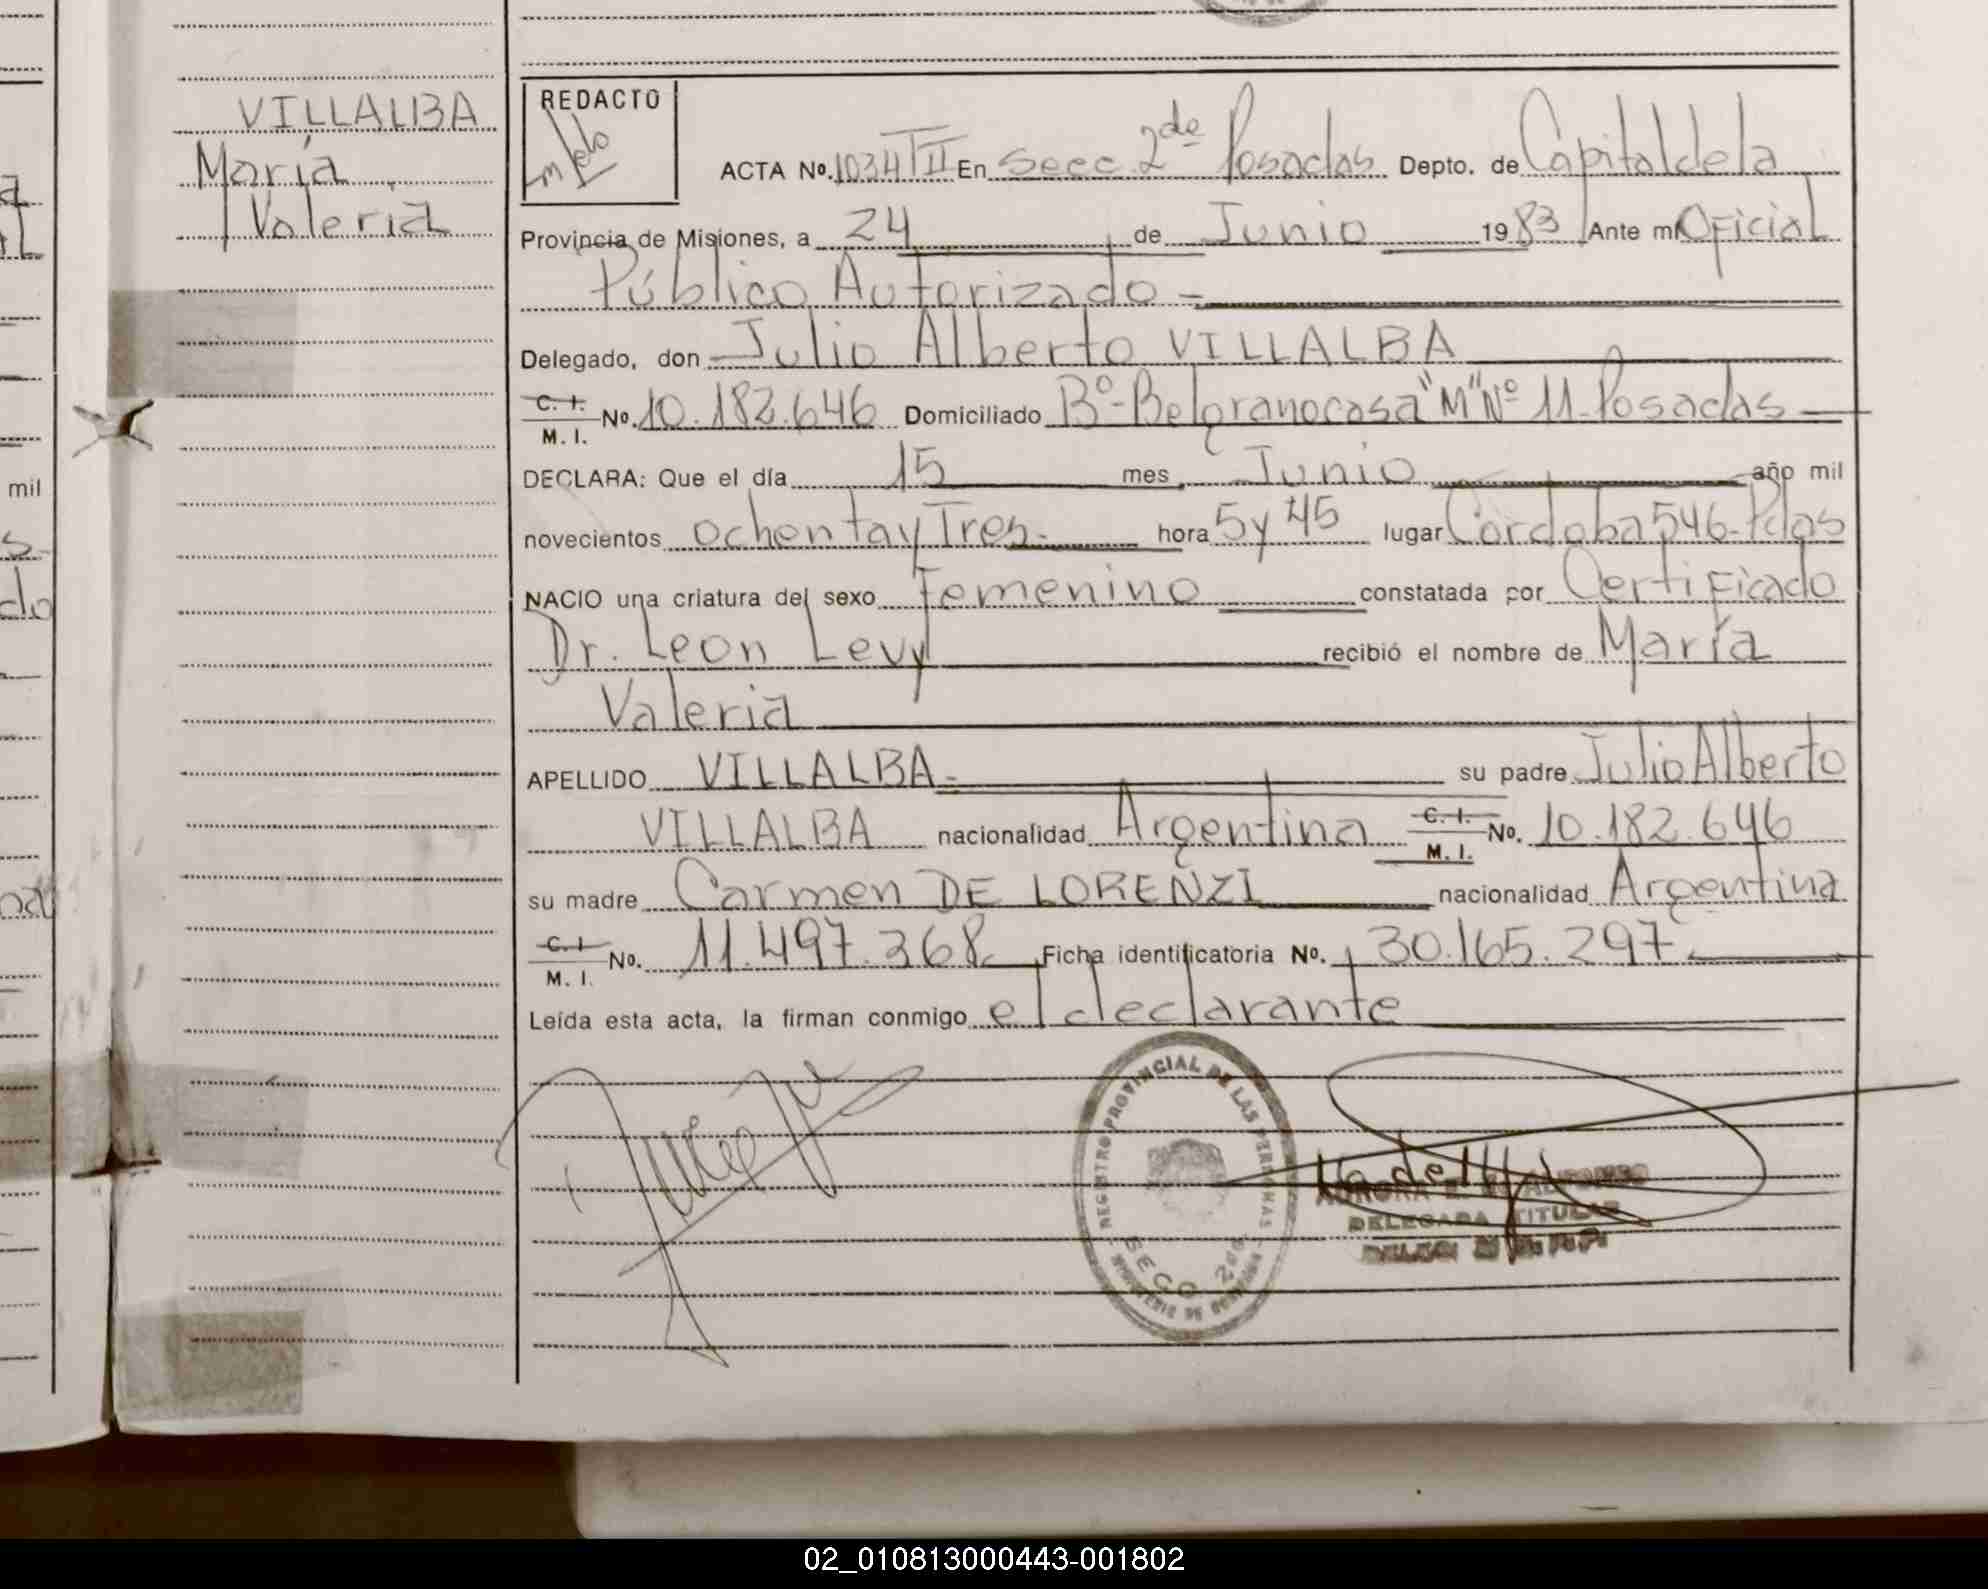 VILLALBA
María
Valeria
REDACTO
ACTA No. 1034 TII En Secc. 2da Posadas Depto. de Capital de la
Provincia de Misiones, a 24 de Junio 1983 Ante mi Oficial
Público Autorizado -
Delegado, don Julio Alberto VILLALBA
C. I.
M. I. No. 10.182.646 Domiciliado Bº-Belgrano casa "M" Nº 11-Posadas
DECLARA: Que el día 15 mes Junio año mil
novecientos ochenta y Tres.- hora 5 y 45 lugar Córdoba 546-Pdas
NACIO una criatura del sexo Femenino constatada por Certificado
Dr. Leon Levy recibió el nombre de María
Valeria
APELLIDO VILLALBA.- su padre Julio Alberto
VILLALBA nacionalidad Argentina C. I. M. I. No. 10.182.646
su madre Carmen DE LORENZI nacionalidad Argentina
C. I. M. I. No. 11.497.368 Ficha identificatoria No. 30.165.297
Leída esta acta, la firman conmigo el declarante
REGISTRO PROVINCIAL DE LAS PERSONAS
SECC 2da
DELEGADA TITULAR
mil
02_010813000443-001802